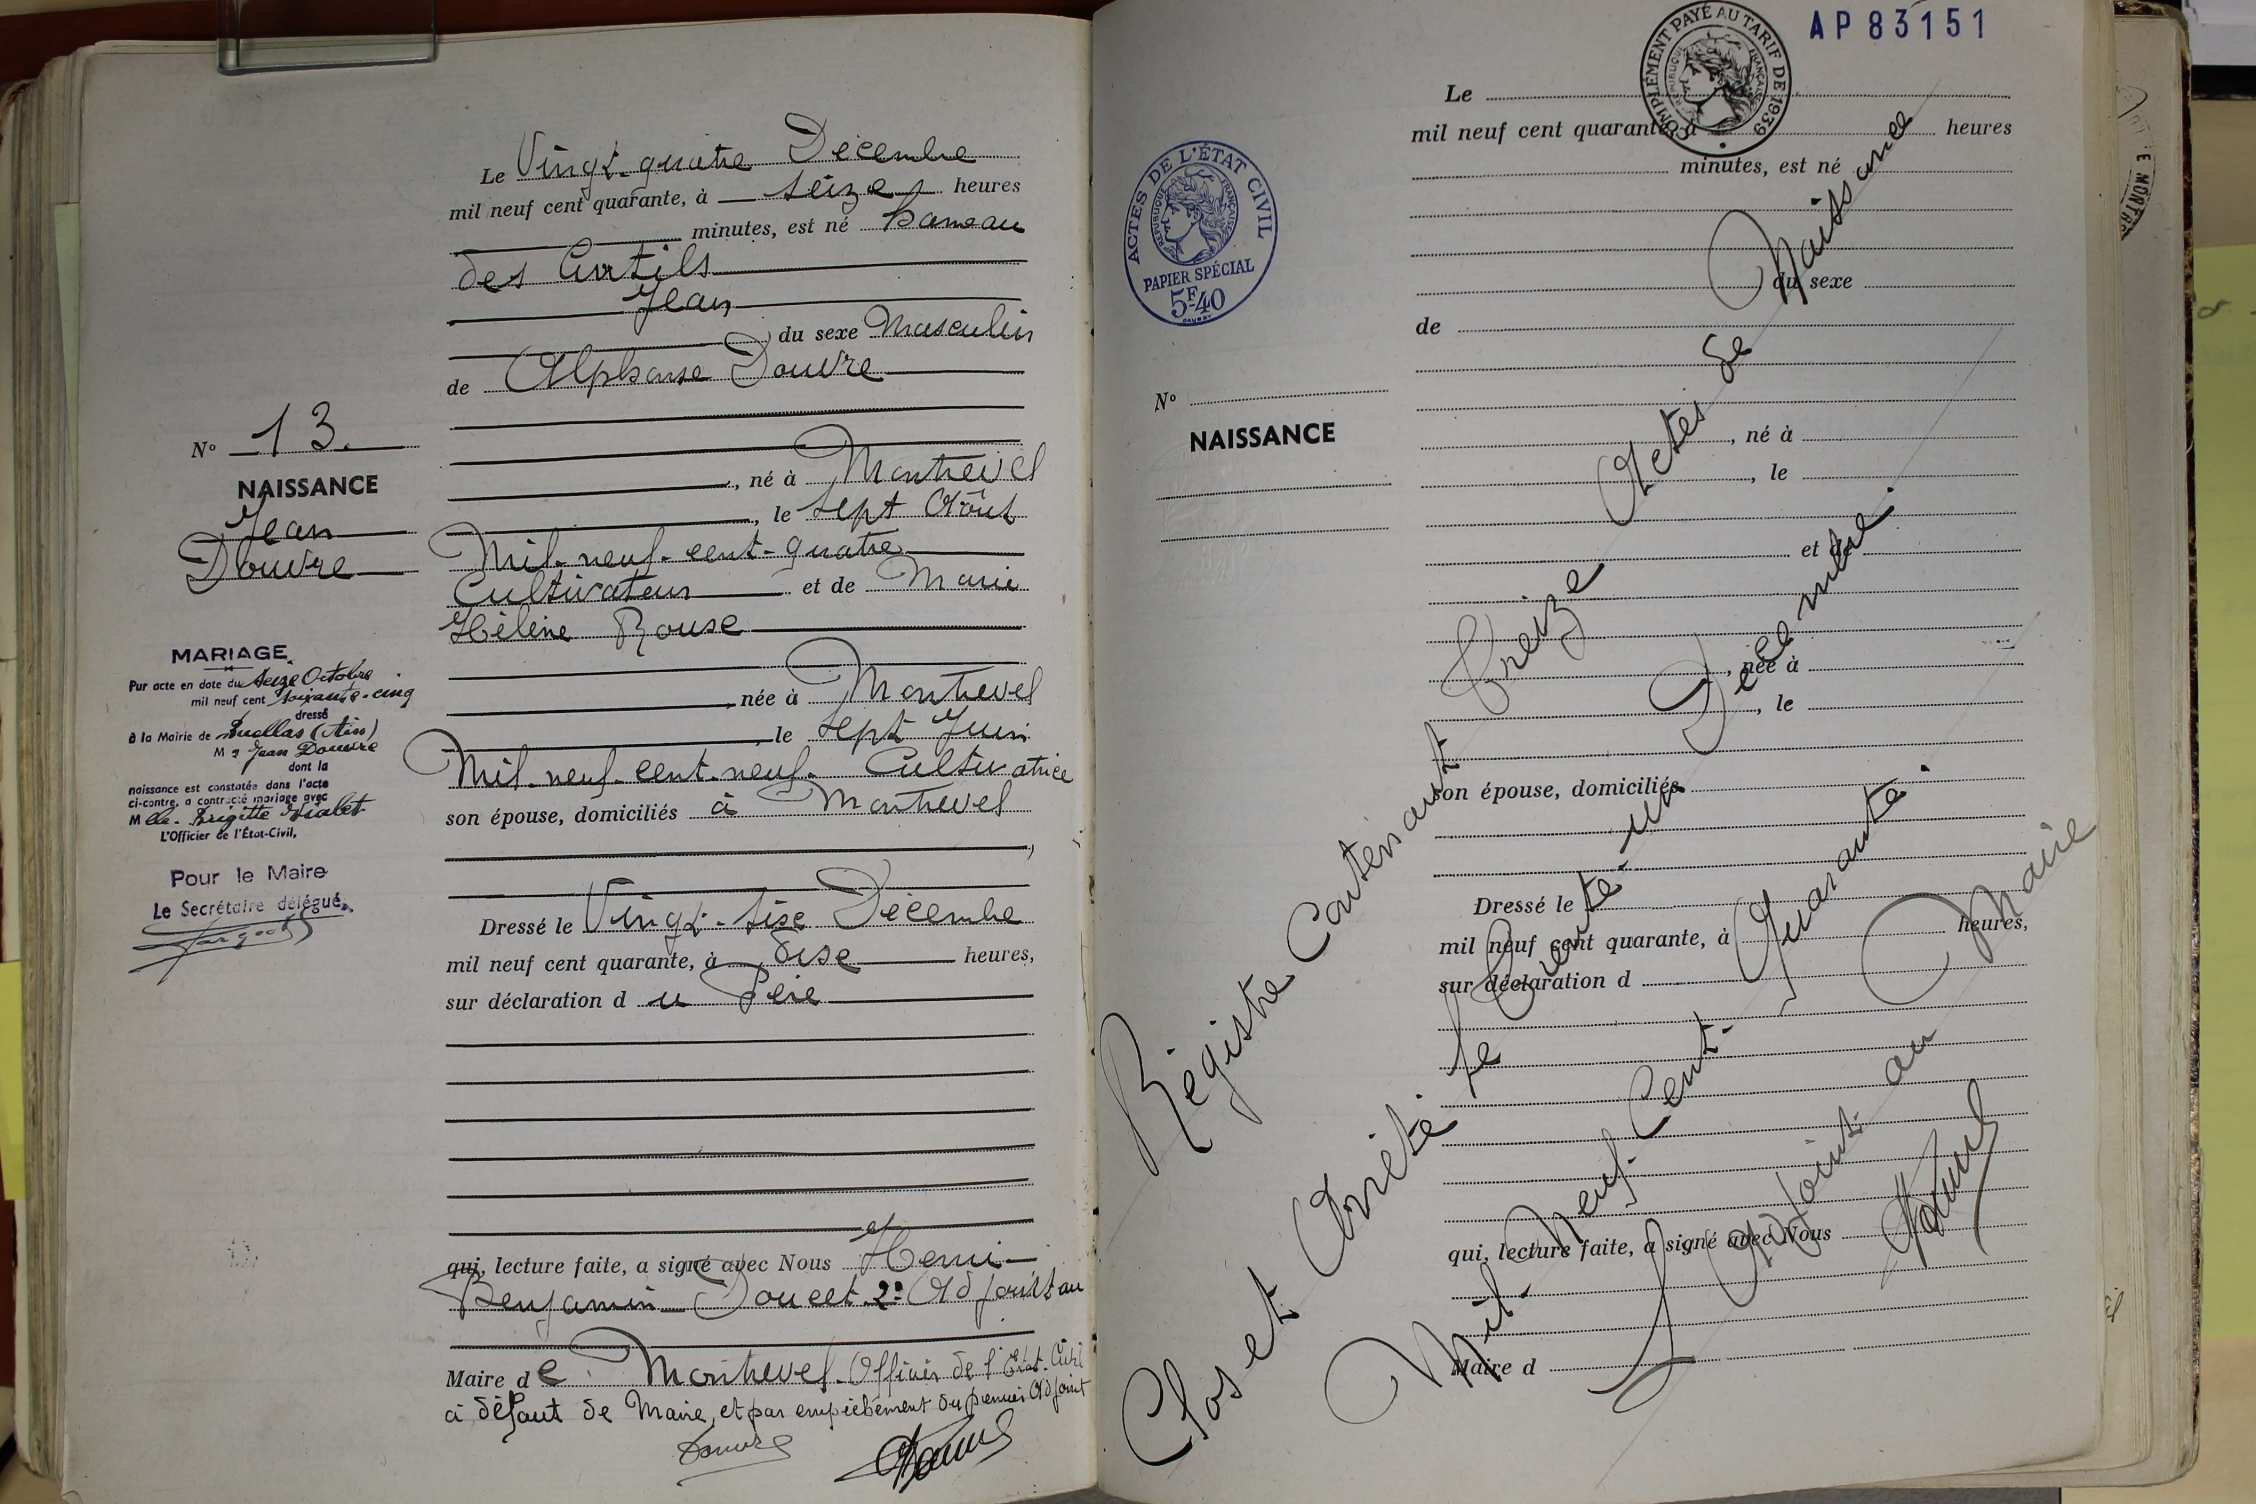 Le Vingt-quatre Décembre
mil neuf cent quarante, à seize heures
minutes, est né hameau
des Curtils
Jean
du sexe Masculin
de Alphonse Douvre
né à Montrevel
, le sept Août
Mil-neuf-cent-quatre
Cultivateur et de Marie
Hélène Rouse
, née à Montrevel
, le sept Juin
Mil-neuf-cent-neuf- Cultivatrice
son épouse, domiciliés à Montrevel
Dressé le Vingt-sise Décembre
mil neuf cent quarante, à dise heures,
sur déclaration du Père
qui, lecture faite, a signé avec Nous et Henri
Benjamin Doucet 2e Adjoint au
Maire de Montrevel Officier de l'Etat-Civil
à défaut de Maire, et par empièchement du premier Adjoint
Douvre
N° 13.
NAISSANCE
Jean
Douvre
MARIAGE
Par acte en date du seize Octobre
mil neuf cent soixante-cinq
dressé
à la Mairie de Buellas (Ain)
Mr Jean Douvre
dont la
naissance est constatée dans l'acte
ci-contre, a contracté mariage avec
Melle Brigitte Vialet
L'Officier de l'État-Civil,
Pour le Maire
Le Secrétaire délégué,
AP83151
COMPLÉMENT PAYÉ AU TARIF DE 1939
RÉPUBLIQUE FRANÇAISE
ACTES DE L'ÉTAT CIVIL
RÉPUBLIQUE FRANÇAISE
PAPIER SPÉCIAL
5F40
Le
mil neuf cent quarante, à heures
minutes, est né
du sexe
de
N°
NAISSANCE
, né à
, le
et de
, née à
, le
son épouse, domiciliés
Dressé le
mil neuf cent quarante, à heures,
sur déclaration d
qui, lecture faite, a signé avec Nous
Maire d
Régistre Contenant treize Actes de Naissance
Clos et Arrêté le trente-un Décembre.
Mil-Neuf-Cent-Quarante.
L'Adjoint au Maire
E MONTR